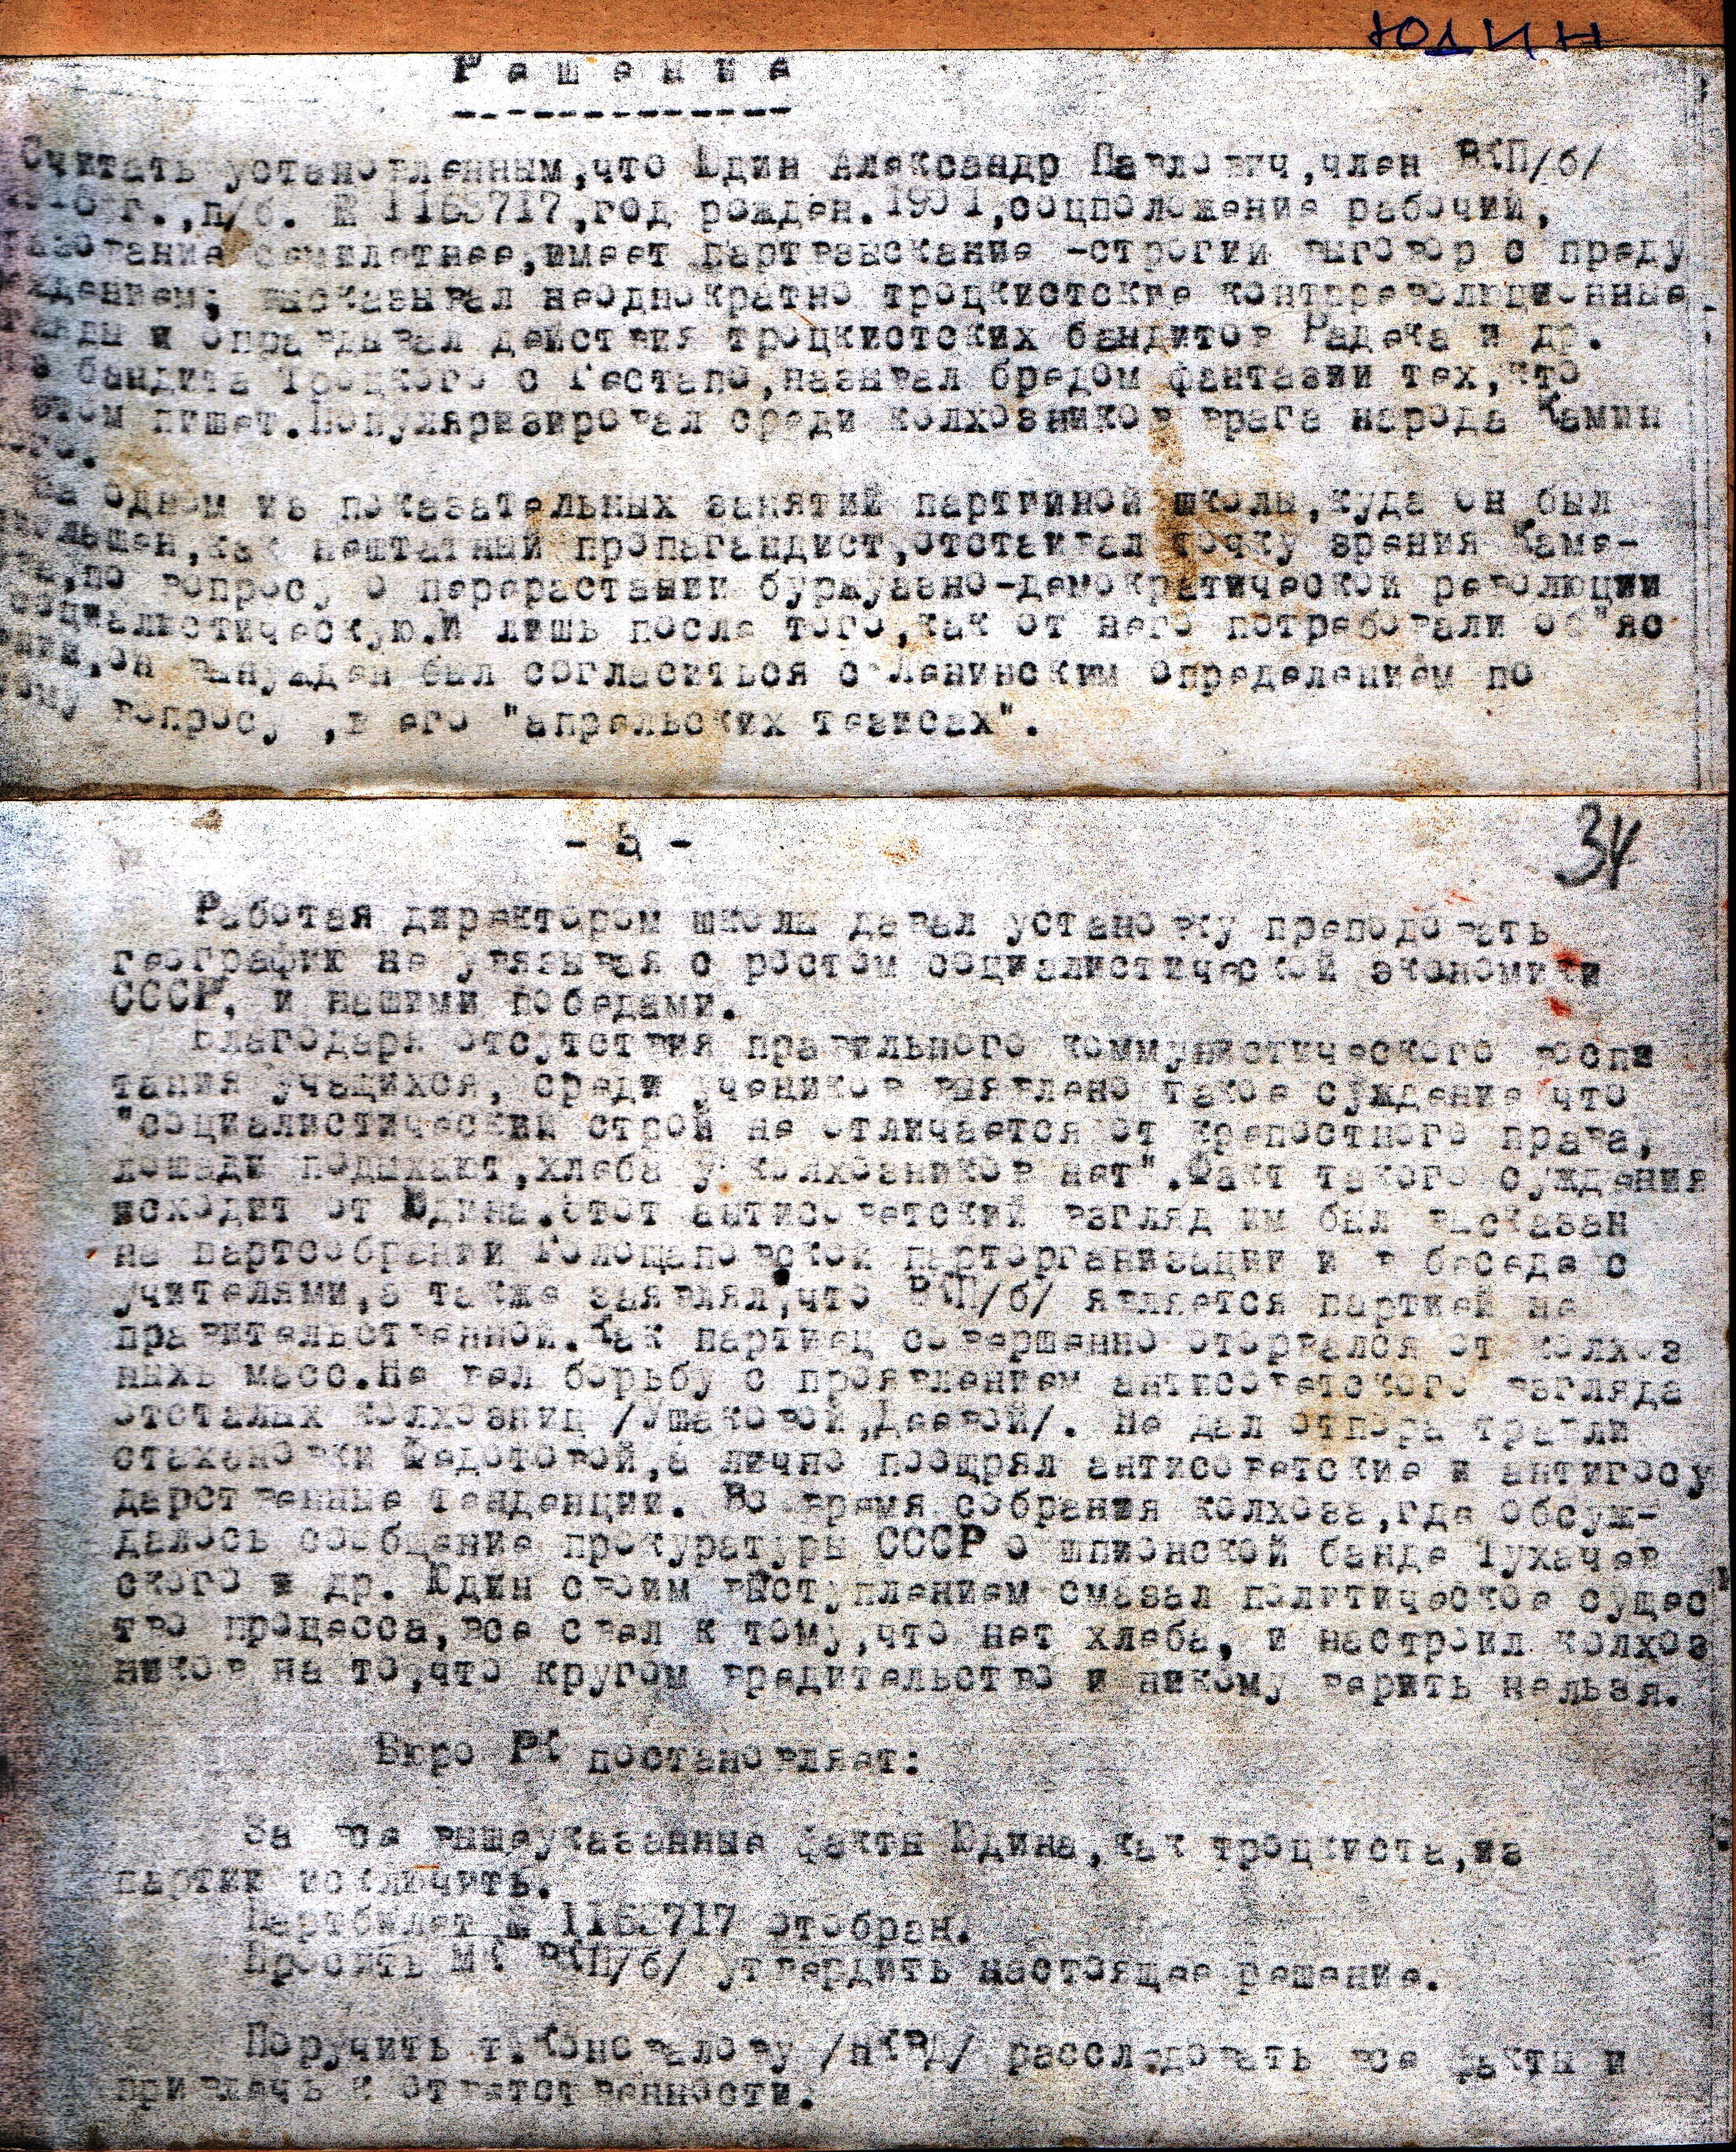 ЮДИН
Решение
-------------
Считать установленным,что Юдин Александр Павлович,член ВКП/б/
г.,п/б. № 1163717,год рожден.1901,соцположение рабочий,
азование семилетнее,имеет партвзыскание -строгий выговор с преду
ждением; высказывал неоднократно троцкистские контрреволюционные
и оправдывал действия троцкистских бандитов Радека и др.
бандита Троцкого с Гестапо,называл бредом фантазии тех,кто
этом пишет.Популяризировал среди колхозников врага народа Камин
ого.
На одном из показательных занятий партийной школы,куда он был
как нештатный пропагандист,отстаивал точку зрения Каме-
ва,по вопросу о перерастании буржуазно-демократической революции
социалистическую.И лишь после того,как от него потребовали об"яс
ний,он вынужден был согласиться с Ленинским определением по
ому вопросу ,в его "апрельских тезисах".
- 2 -
34
Работая директором школы давал установку преподовать
географию не увязывая с ростом социалистической экономики
СССР, и нашими победами.
Благодаря отсутствия правильного коммунистического воспи
тания учащихся, среди учеников выявлено такое суждение что
"социалистический строй не отличается от крепостного права,
лошади подыхают,хлеба у колхозников нет".Факт такого суждения
исходит от Юдина.Этот антисоветский взгляд им был высказан
на партсобрании Голощаповской парторганизации и в беседе с
учителями,а также заявлял,что ВКП/б/ является партией не
правительственной.Как партиец совершенно оторвался от колхоз
ныхь масс.Не вел борьбу с проявлением антисоветского взгляда
отсталых колхозниц /Ушаковой,Деевой/. Не дал отпора травли
стахановки Федотовой,а лично поощрял антисоветские и антигосу
дарственные тенденции. Во время собрания колхоза,где обсуж-
далось сообщение прокуратуры СССР о шпионской банде Тухачев
ского и др. Юдин своим выступлением смазал политическое сущес
тво процесса,все свел к тому,что нет хлеба, и настроил колхоз
ников на то,что кругом вредительство и никому верить нельзя.
Бюро РК постановляет:
За все вышеуказанные факты Юдина,как троцкиста,из
партии исключить.
Партбилет № 1163717 отобран.
Просить МК ВКП/б/ утвердить настоящее решение.
Поручить т.Коновалову /НКВД/ расследовать все факты и
привлечь к ответственности.